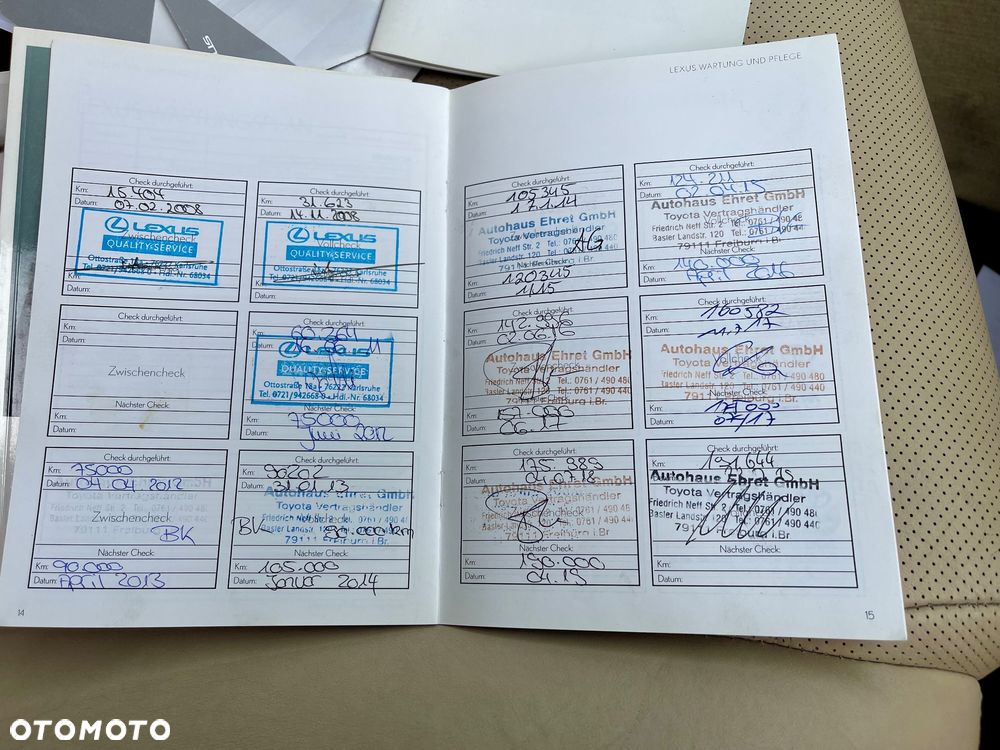 LEXUS WARTUNG UND PFLEGE
Check durchgeführt:
Km: 15404
Datum: 07.02.2008
LEXUS
Zwischencheck
QUALITY&SERVICE
Tel. 0721/942668-0 - Hdl.-Nr. 68034
Km:
Datum:
Check durchgeführt:
Km: 31.623
Datum: 14.11.2008
LEXUS
Vollcheck
QUALITY&SERVICE
Ottostraße Karlsruhe
Tel. 0721/942668-0 - Hdl.-Nr. 68034
Datum:
Check durchgeführt:
Km:
Datum:
Zwischencheck
Nächster Check:
Km:
Datum:
Check durchgeführt:
Km: 60.264
Datum:
LEXUS
QUALITY&SERVICE
Ottostraße 18a - 76227 Karlsruhe
Tel. 0721/942668-0 - Hdl.-Nr. 68034
Nächster Check:
Km: 75000
Datum: Juni 2012
Check durchgeführt:
Km: 75000
Datum: 04.04.2012
Toyota Vertragshändler
Zwischencheck
BK
Nächster Check:
Km: 90.000
Datum: April 2013
Check durchgeführt:
Km: 90202
Datum: 31.01.13
Autohaus Ehret GmbH
Toyota Vertragshändler
Friedrich Neff Str. 2 Tel.: 0761 / 490 480
BK 90.000 km
79111 Freiburg i.Br.
Nächster Check:
Km: 105.000
Datum: Januar 2014
14
Check durchgeführt:
Km: 105345
Datum: 17.1.14
Autohaus Ehret GmbH
Toyota Vertragshändler
Friedrich Neff Str. 2 Tel.: 0761
Basler Landstr. 120
79111 Freiburg i.Br.
Nächster Check:
Km: 120345
Datum: 1/15
Check durchgeführt:
Km: 124.211
Datum: 02.04.15
Autohaus Ehret GmbH
Toyota Vertragshändler
Friedrich Neff Str. 2 Tel.: 0761 / 490 48
Basler Landstr. 120 Tel.: 0761 / 490 44
79111 Freiburg i.Br.
Nächster Check:
Km: 140.000
Datum: April 2016
Check durchgeführt:
Km: 142.998
Datum: 02.06.16
Autohaus Ehret GmbH
Toyota Vertragshändler
Friedrich Neff Str. 2 Tel.: 0761 / 490 480
Basler Landstr. 120 Tel.: 0761 / 490 440
79111 Freiburg i.Br.
Nächster Check:
Km: 157.000
Datum: 06.17
Check durchgeführt:
Km: 160552
Datum:
Autohaus Ehret GmbH
Toyota Vertragshändler
Vollcheck
Friedrich Neff Str. 2 Tel.: 0761 / 490 480
Basler Landstr. 120 Tel.: 0761 / 490 440
79111 Freiburg i.Br.
Nächster Check:
Km:
Datum: 07/17
Check durchgeführt:
Km: 175.989
Datum: 04.07.18
Autohaus Ehret GmbH
Toyota Vertragshändler
Zwischencheck
Friedrich Neff Str. 2 Tel.: 0761 / 490 480
Basler Landstr. 120 Tel.: 0761 / 490 440
79111 Freiburg i.Br.
Nächster Check:
Km: 190.000
Datum: 07.19
Check durchgeführt:
Km: 191644
Datum:
Autohaus Ehret GmbH
Toyota Vertragshändler
Friedrich Neff Str. 2 Tel.: 0761 / 490 480
Basler Landstr. 120 Tel.: 0761 / 490 440
79111 Freiburg i.Br.
Nächster Check:
Km:
Datum:
15
OTOMOTO